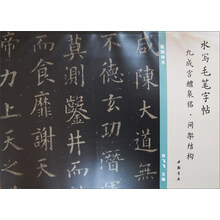 水写毛笔字帖
九成宫醴泉铭·间架结构
咸陳大道無
不德玄功潛
莫測鑿井而
而食靡謝天
帝力上天之
中国书店